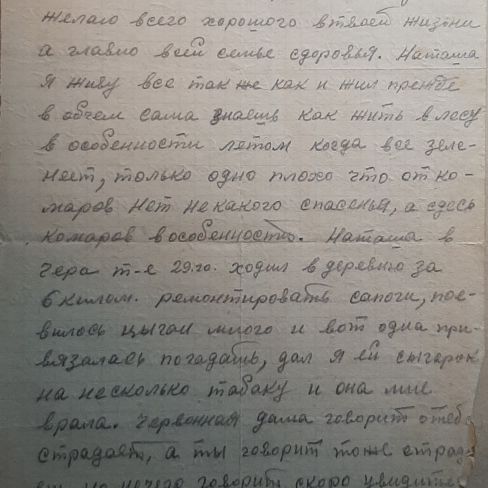 желаю всего хорошого втвоей жизни
а главно всей семье сдоровья. Наташа
я живу все так же как и жил прежде
в обчем сама знаешь как жить в лесу
в особенности летом когда все зеле-
неет, только одно плохо что от ко-
маров нет некакого спасенья, а сдесь
комаров вособенность. Наташа в
чера т-е 29.го. ходил в деревню за
6 килом. ремонтировать сапоги, пое-
вилось цыган много и вот одна при-
вязалась погадать, дал я ей сыгарок
на несколько табаку и она мне
врала. червонная дама говорит отебе
страдает, а ты говорит тоже страда
ет но нечего говорит скоро увидите